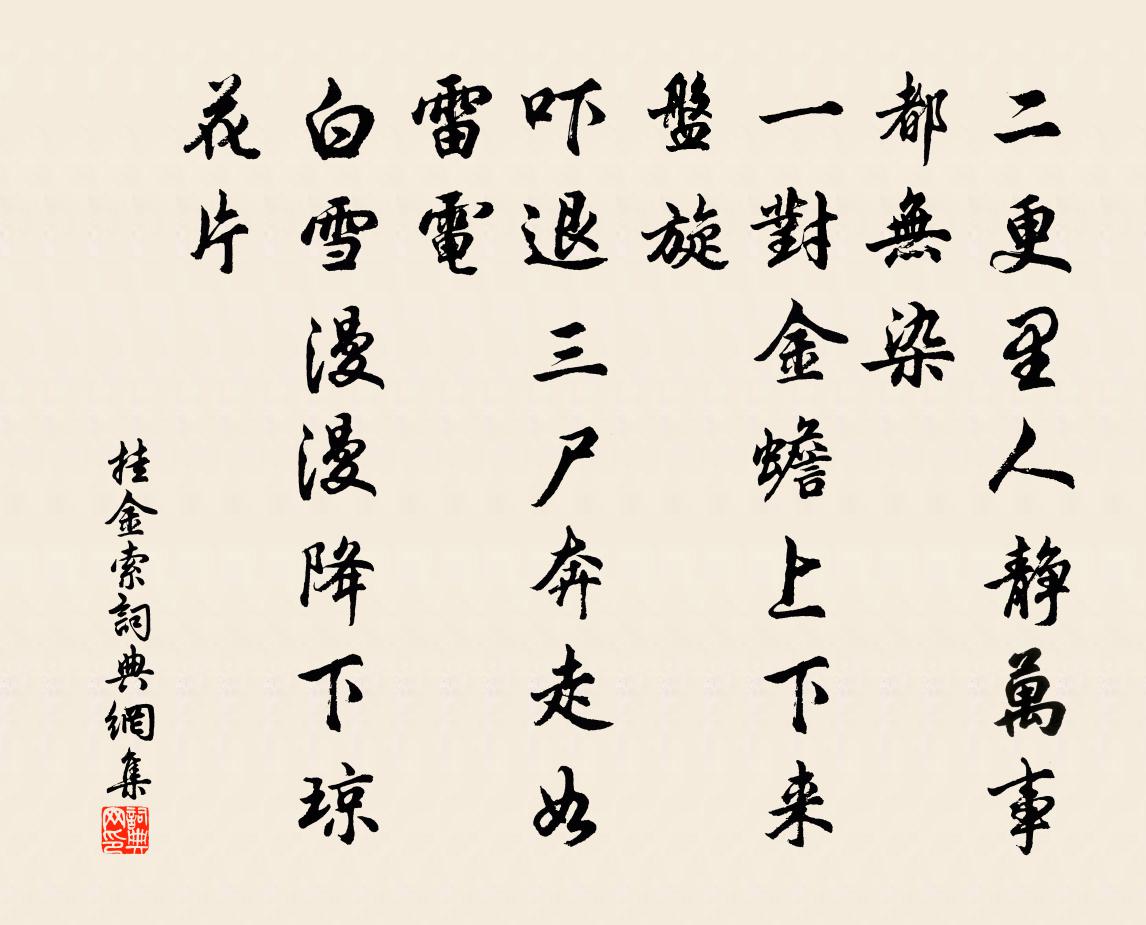 二更里人靜萬事
都無染
一對金蟾上下来
盤旋
吓退三尸奔走如
雷電
白雪漫漫降下琼
花片
挂金索詞典網集
詞典网印